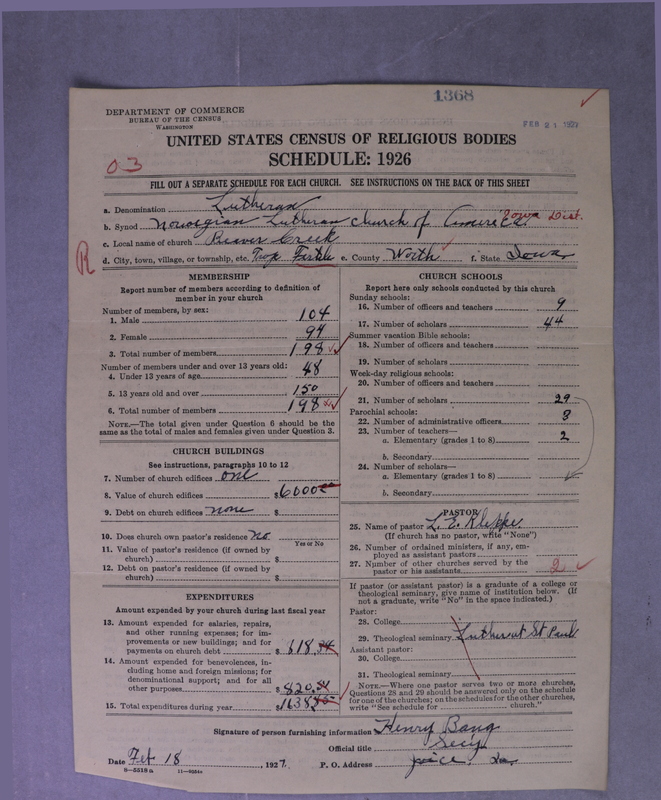 1368
DEPARTMENT OF COMMERCE
BUREAU OF THE CENSUS
WASHINGTON
FEB 21 1927
UNITED STATES CENSUS OF RELIGIOUS BODIES
SCHEDULE: 1926
03
FILL OUT A SEPARATE SCHEDULE FOR EACH CHURCH. SEE INSTRUCTIONS ON THE BACK OF THIS SHEET
a. Denomination Lutheran
b. Synod Norwegian Lutheran Church of America Iowa Dist.
c. Local name of church Beaver Creek
R
d. City, town, village, or township, etc. Fertile e. County Worth f. State Iowa
MEMBERSHIP
Report number of members according to definition of
member in your church
Number of members, by sex:
1. Male 104
2. Female 94
3. Total number of members 198
Number of members under and over 13 years old:
4. Under 13 years of age 48
5. 13 years old and over 150
6. Total number of members 198
NOTE.—The total given under Question 6 should be the
same as the total of males and females given under Question 3.
CHURCH BUILDINGS
See instructions, paragraphs 10 to 12
7. Number of church edifices one
8. Value of church edifices $6000
9. Debt on church edifices none $
10. Does church own pastor's residence? No
Yes or No
11. Value of pastor's residence (if owned by
church) $
12. Debt on pastor's residence (if owned by
church) $
EXPENDITURES
Amount expended by your church during last fiscal year
13. Amount expended for salaries, repairs,
and other running expenses; for im-
provements or new buildings; and for
payments on church debt $ 818.34
14. Amount expended for benevolences, in-
cluding home and foreign missions; for
denominational support; and for all
other purposes $ 820.51
15. Total expenditures during year $ 1638.85
CHURCH SCHOOLS
Report here only schools conducted by this church
Sunday schools:
16. Number of officers and teachers 9
17. Number of scholars 44
Summer vacation Bible schools:
18. Number of officers and teachers
19. Number of scholars
Week-day religious schools:
20. Number of officers and teachers
21. Number of scholars 29
Parochial schools:
22. Number of administrative officers 3
23. Number of teachers—
a. Elementary (grades 1 to 8) 2
b. Secondary
24. Number of scholars—
a. Elementary (grades 1 to 8)
b. Secondary
PASTOR
25. Name of pastor L. E. Kleppe
(If church has no pastor, write "None")
26. Number of ordained ministers, if any, em-
ployed as assistant pastors
27. Number of other churches served by the
pastor or his assistants 2
If pastor (or assistant pastor) is a graduate of a college or
theological seminary, give name of institution below. (If
not a graduate, write "No" in the space indicated.)
Pastor:
28. College
29. Theological seminary Luther at St Paul
Assistant pastor:
30. College
31. Theological seminary
NOTE.—Where one pastor serves two or more churches,
Questions 28 and 29 should be answered only on the schedule
for one of the churches; on the schedules for the other churches,
write "See schedule for church."
Signature of person furnishing information Henry Bang
Official title Secy
Date Feb 18, 1927. P. O. Address Joice Ia
8—5518a 11—9024a